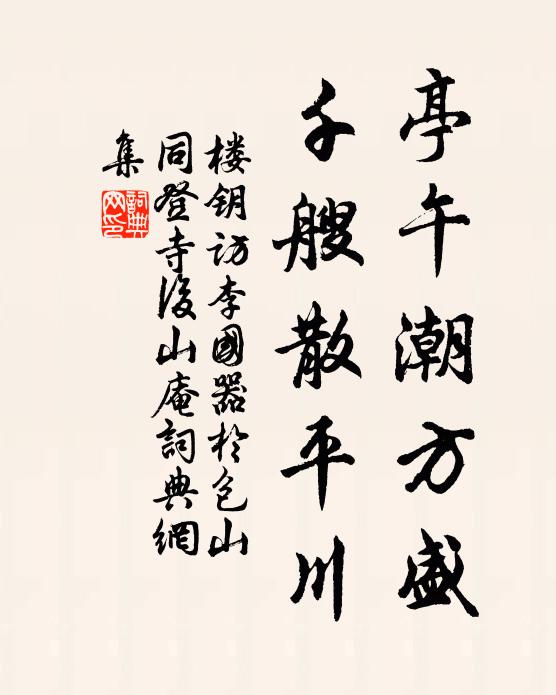 亭午潮方盛
千艘散平川
楼钥访李國器於包山
同登寺後山庵詞典網
集
詞典网印